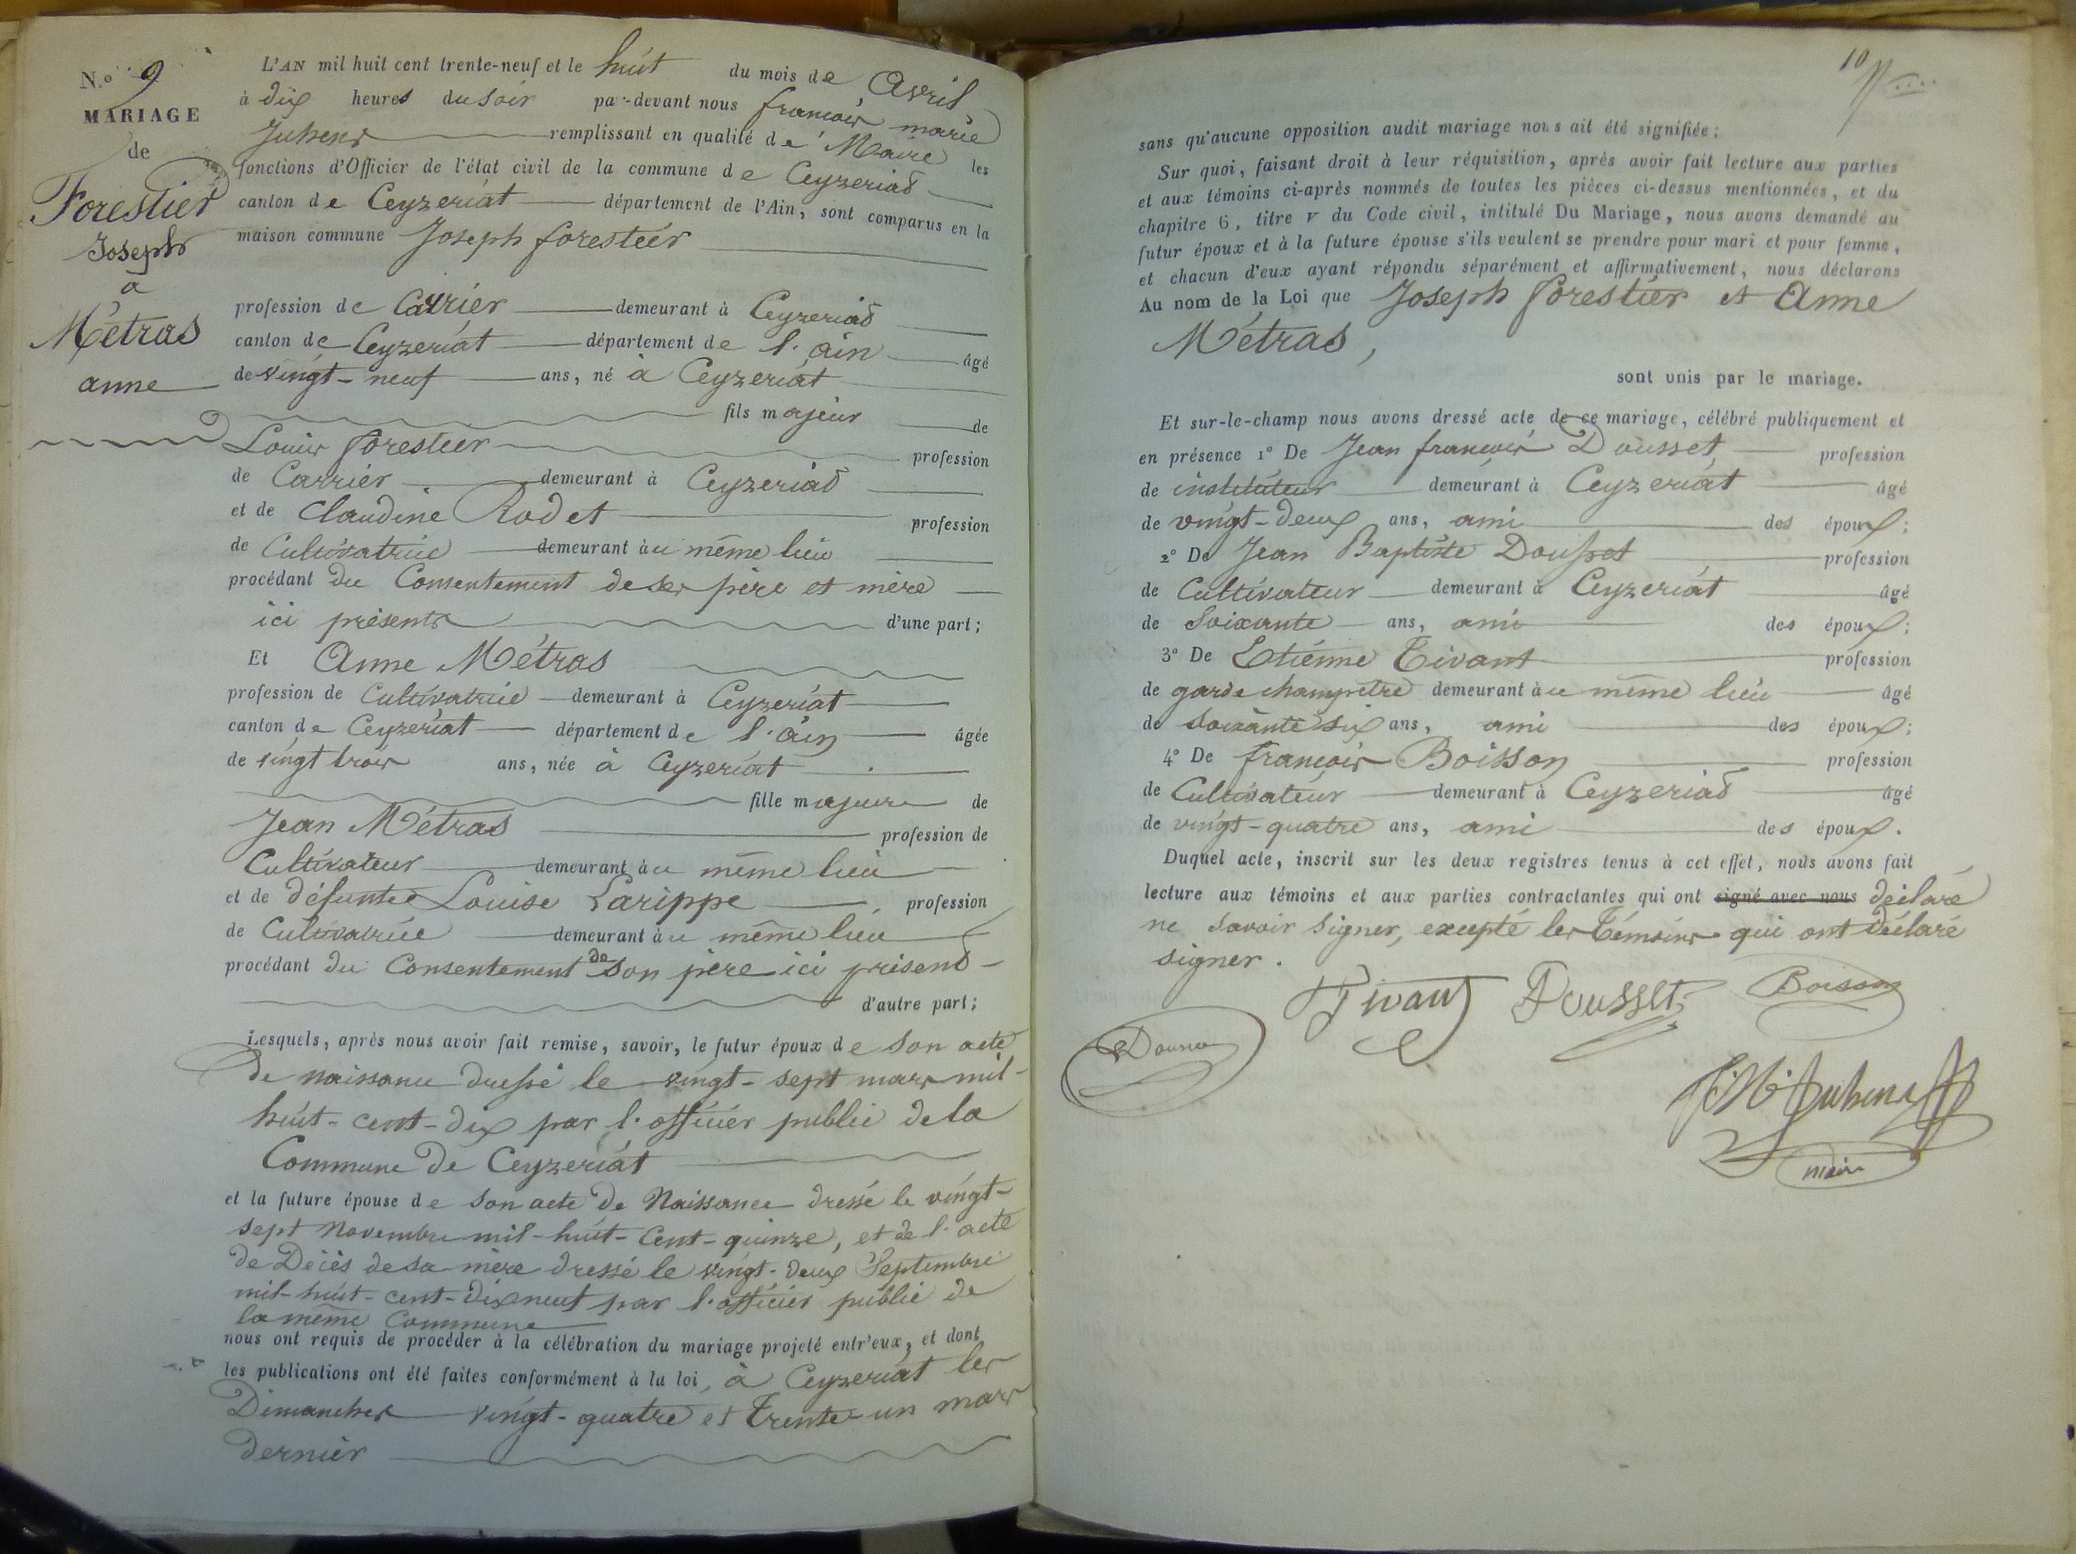 N.º 9
MARIAGE
de
Forestier
Joseph
a
Métras
anne
L'AN mil huit cent trente-neuf et le huit du mois de Avril
à dix heures du soir par-devant nous françois marie
Juhens remplissant en qualité de Maire les
fonctions d'Officier de l'état civil de la commune de Ceyzeriat
canton de Ceyzeriat département de l'Ain, sont comparus en la
maison commune Joseph forestier
profession de Carrier demeurant à Ceyzeriat
canton de Ceyzeriat département de l'ain âgé
de vingt-neuf ans, né à Ceyzeriat
fils majeur de
Louis forestier profession
de Carrier demeurant à Ceyzeriat
et de Claudine Rodet profession
de Cultivatrice demeurant au même lieu
procédant du Consentement de ses père et mère
ici présents d'une part;
Et Anne Métras
profession de Cultivatrice demeurant à Ceyzeriat
canton de Ceyzeriat département de l'ain âgée
de vingt trois ans, née à Ceyzeriat
fille majeure de
Jean Métras profession de
Cultivateur demeurant au même lieu
et de défunte Louise Larippe profession
de Cultivatrice demeurant au même lieu
procédant du Consentement de son père ici présent
d'autre part;
Lesquels, après nous avoir fait remise, savoir, le futur époux de son acte
de naissance dressé le vingt-sept mars mil-
huit-cent-dix par l'officier public de la
Commune de Ceyzeriat
et la future épouse de son acte de Naissance dressé le vingt-
sept Novembre mil-huit-Cent-quinze, et de l'acte
de Décès de sa mère dressé le vingt-deux Septembre
mil-huit-cent-dixneuf par l'officier public de
la même Commune
nous ont requis de procéder à la célébration du mariage projeté entr'eux, et dont
les publications ont été faites conformément à la loi, à Ceyzeriat les
Dimanches vingt-quatre et trente-un mars
dernier
10
sans qu'aucune opposition audit mariage nous ait été signifiée;
Sur quoi, faisant droit à leur réquisition, après avoir fait lecture aux parties
et aux témoins ci-après nommés de toutes les pièces ci-dessus mentionnées, et du
chapitre 6, titre V du Code civil, intitulé Du Mariage, nous avons demandé au
futur époux et à la future épouse s'ils veulent se prendre pour mari et pour femme,
et chacun d'eux ayant répondu séparément et affirmativement, nous déclarons
Au nom de la Loi que Joseph forestier et Anne
Métras,
sont unis par le mariage.
Et sur-le-champ nous avons dressé acte de ce mariage, célébré publiquement et
en présence 1º De Jean françois Dousset profession
de instituteur demeurant à Ceyzeriat âgé
de vingt-deux ans, ami des époux;
2º De Jean Baptiste Dousset profession
de Cultivateur demeurant à Ceyzeriat âgé
de Soixante ans, ami des époux;
3º De Etienne Tivant profession
de garde champêtre demeurant au même lieu âgé
de soixante six ans, ami des époux;
4º De françois Boisson profession
de Cultivateur demeurant à Ceyzeriat âgé
de vingt-quatre ans, ami des époux.
Duquel acte, inscrit sur les deux registres tenus à cet effet, nous avons fait
lecture aux témoins et aux parties contractantes qui ont signé avec nous déclaré
ne savoir signer, excepté les Témoins qui ont déclaré
signer.
Tivant Dousset Boisson
maire